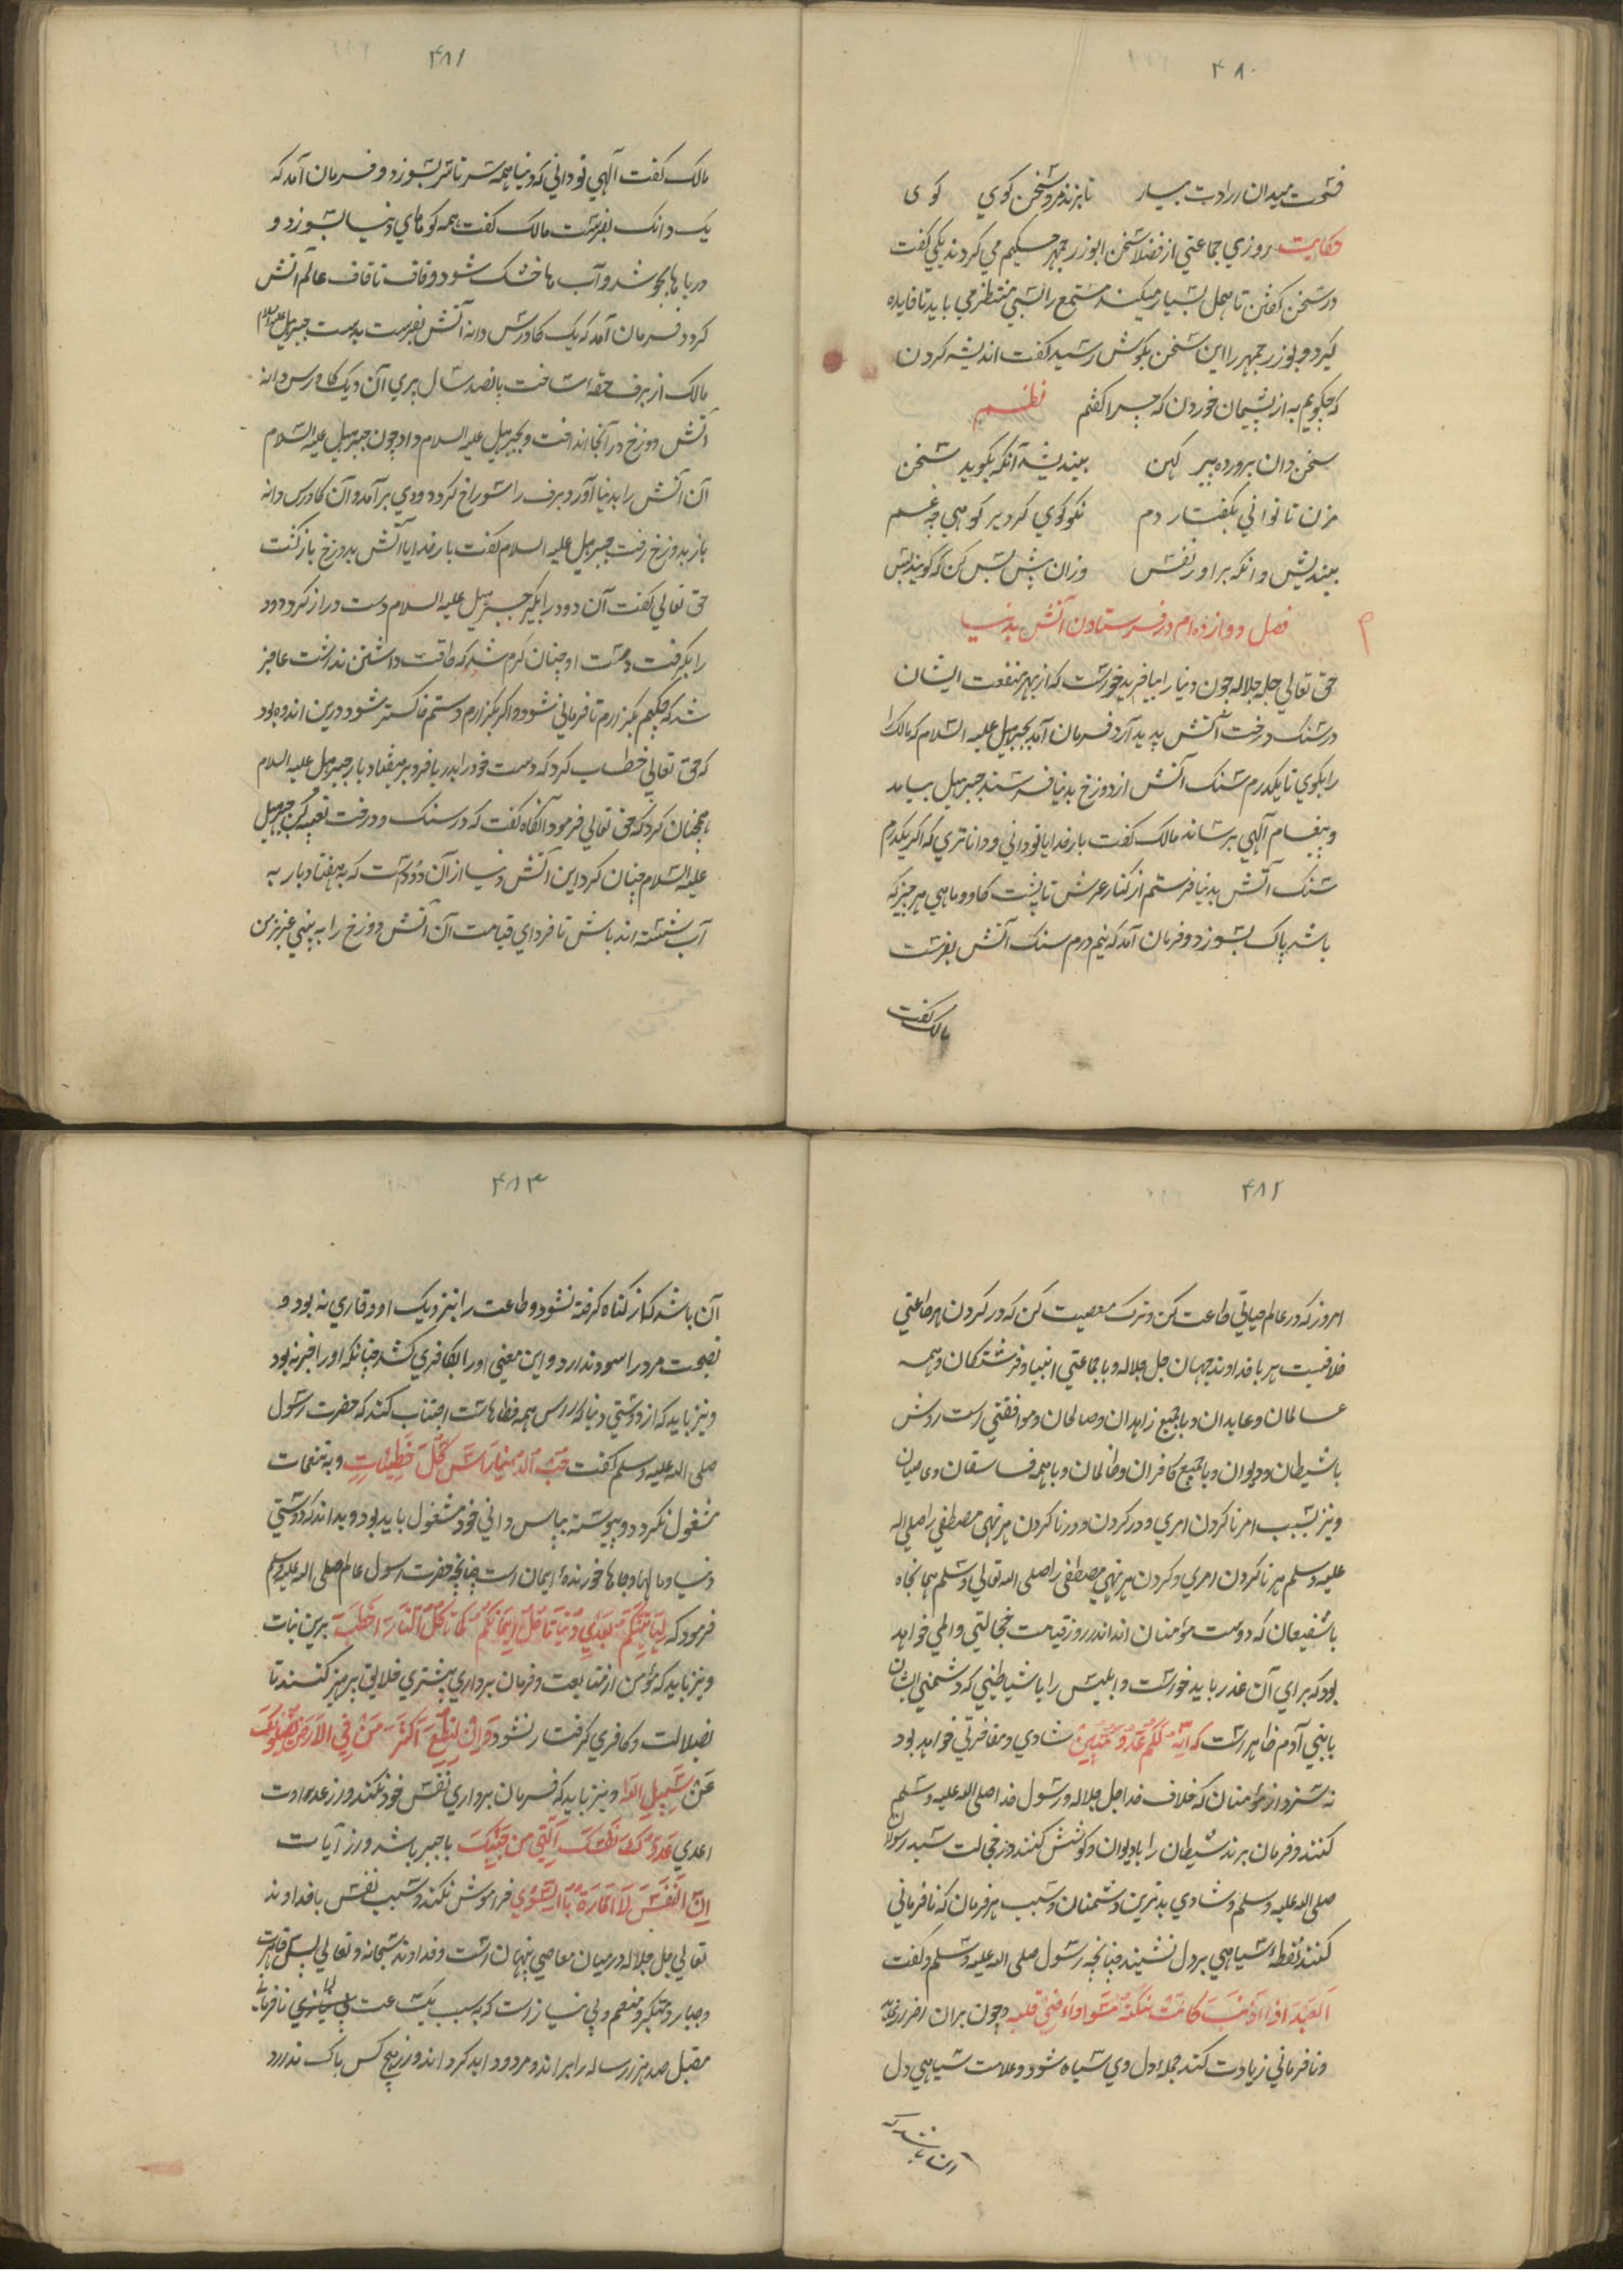 ۴۸۰
فتحت میدان ارادت بیار تا بزند مرد سخن گوی گوی
حکایت روزی جماعتی از فضلا سخن ابوزرجمهر حکیم می کردند یکی گفت
در سخن گفتن تامل بسیار میکند مستمع را بسی منتظر می باید تا فایده
گیرد و بوزرجمهر را این سخن بگوش رسید گفت اندیشه کردن
که چگویم به از پشیمان خوردن که چرا گفتم نظم
سخن دان پرورده پیر کهن بیندیشد آنکه بگوید سخن
مزن تا توانی بگفتار دم نکو گوی گر دیر گویی چه غم
بیندیش و انگه براور نفس وزان پیش بس کن که گویند بس
فصل دوازدهم در فرستادن آتش بدنیا
حق تعالی جله جلاله چون دنیا را بیافرید خورست که از بهر منفعت ایشان
در سنگ درخت آتش پدید آرد فرمان آمد بجبرایل علیه السلام که مالک را
را بگوی تا یکدرم سنک آتش از دوزخ بدنیا فرستد جبرییل بیامد
و پیغام آلهی برساند مالک گفت بار خدایا تودانی و داناتری که اگر یکدرم
سنک آتش بدنیا فرستم از کنار عرش تا پشت گاو و ماهی هر چیز که
باشد پاک بسوزد و فرمان آمد که نیم درم سنک آتش بفرست
مالک گفت
۴۸۱
مالک گفت آلهی تودانی که دنیا همه سر تا سر بسوزد و فرمان آمد که
یک دانک بفرست مالک گفت همه کوهای دنیا بسوزد و
دریا ها بجوشد و آب ها خشک شود و قاف تا قاف عالم اتش
گرد و فرمان آمد که یک کاورس دانه آتش بفرست بدست جبریل علیه السلام
مالک از برف حقه ساخت پانصد سال پری آن و یک کاورس دانه
آتش دوزخ در آنجا انداخت و بجبرییل علیه السلام داد چون جبرییل علیه السلام
آن آتش را بدنیا آورد برف را سوراخ کرد و دودی بر آمد و آن کاورس دانه
باز بدوزخ رفت جبرییل علیه السلام گفت بار خدایا آتش بدوزخ باز گشت
حق تعالی گفت آن دود را بگیر جبرییل علیه السلام دست دراز کرد و دود
را بگرفت دست او چنان گرم شد که طاقت داشتن نداشت عاجز
شد که چکنم بگزارم نا فرمانی شود و اگر بگزارم دستم خاکستر شود درین اندوه بود
که حق تعالی خطاب کرد که دست خود را بدریا فرو بر هفتاد بار جبرییل علیه السلام
همچنان کرد که حق تعالی فرمود آنگاه گفت که در سنک و درخت تعبیه کن جبرییل
علیه السلام چنان کرد این آتش دنیا از آن دودست که به هفتاد بار به
آب شسته اند باش تا فردای قیامت آن آتش دوزخ را به بینی عزیز من
۴۸۲
امروز که در عالم حیاتی طاعت کن و ترک معصیت کن که در کردن هر طاعتی
خلافیست هر با خداوند جهان جل جلاله و با جماعتی انبیا و فرشتگان و همه
عالمان و عابدان و با جمیع زاهدان و صالحان و موافقتی است روشن
با شیطان و دیوان و با جمیع کافران و ظالمان و با همه فاسقان و عاصیان
و نیز بسبب امر ناکردن امری و در کردن و در ناکردن هر نهی مصطفی را صلی اله
علیه وسلم هر ناکردن امری و کردن هر نهی مصطفی را صلی الله تعالی وسلم همانجاه
با شفیعان که دوست مؤمنان اند اندر روز قیامت خجالتی و المی خواهد
بود که برای آن عذر باید خورست و ابلیس را با شیاطینی که دشمنی ایشان
با بنی آدم ظاهر است که انه لکم عدو مبین شادی و مفاخرتی خواهد بود
نه سزد از مؤمنان که خلاف خدا جل جلاله و رسول خدا صلی الله علیه وسلم
کنند و فرمان برند شیطان را با دیوان و کوشش کنند در خجالت سید رسولان
صلی الله علیه وسلم و شادی بدترین دشمنان و سبب هر فرمان که نا فرمانی
کنند نقطه سیاهی بر دل نشیند چنانچه رسول صلی الله علیه وسلم و گفت
العبد اذا اذنب کانت نکتة سوداء فی قلبه و چون بران
و نا فرمانی زیادت کند جمله دل وی سیاه شود و علامت سیاهی دل
آن باشد که
۴۸۳
آن باشد کز گناه گرفته نشود و طاعت را بنزدیک او وقاری نه بود و
نصیحت مرد را سود ندارد و این معنی او را بکافری کشد چنانکه او را خبر نه بود
و نیز باید که از دوستی دنیا که راس همه خطاهاست اجتناب کند که حضرت رسول
صلی الله علیه وسلم گفت حب الدنیا راس کل خطیئات و به تنعمات
مشغول نگردد و پیوسته بپاس دانی خود مشغول باید بود و بداند که دوستی
دنیا و مالها و جاها خورندهٔ ایمان است چنانچه حضرت رسول عالم صلی اله علیه وسلم
فرمود که لیاتینکم بعدی دنیا تاکل ایمانکم کما تاکل النار الحطب برین نیات
و نیز باید که مؤمن از متابعت و فرمان برداری بیشتری خلایق پرهیز کنند تا
بضلالت و کافری گرفتار نشود و ان تطع اکثر من فی الارض یضلوک
عن سبیل الله و نیز باید که فرمان برداری نفس خود نکند و از عداوت
اعدی عدوک نفسک التی من جنبیک با خبر باشد و از آیات
ان النفس لامارة بالسوی فراموش نکند و سبب نفس با خداوند
تعالی جل جلاله در میان معاصی پنهان است و خداوند سبحانه و تعالی بس قاهرست
و جبار و متکبر و منعم و بی نیاز است که بسبب یک ساعت نافرمانی
مقبل صد هزار ساله را براند و مردود ابد گرداند و از هیچ کس باک ندارد